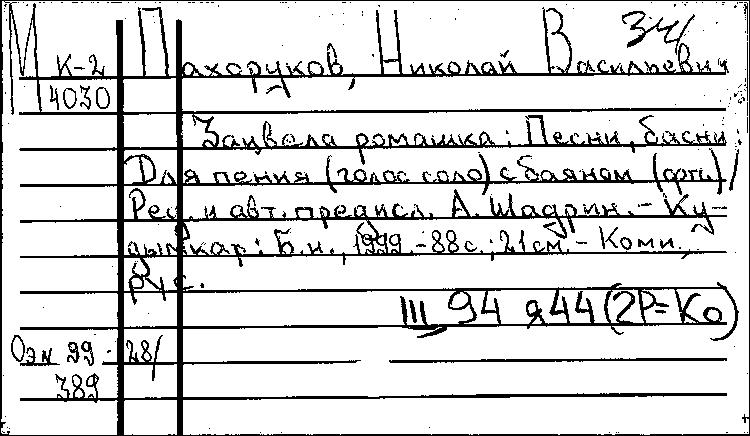 М К-2 Пахоруков, Николай Васильевич 34/
4030
Зацвела ромашка: Песни, басни
Для пения (голос соло) с баяном (фп.) /
Ред. и авт. предисл. А. Шадрин. - Ку-
дымкар: Б.и., 1999. - 88 с.; 21 см. - Коми,
рус.
III 94 я44 (2Р=Ко)
Оэн 99 - 28/
389